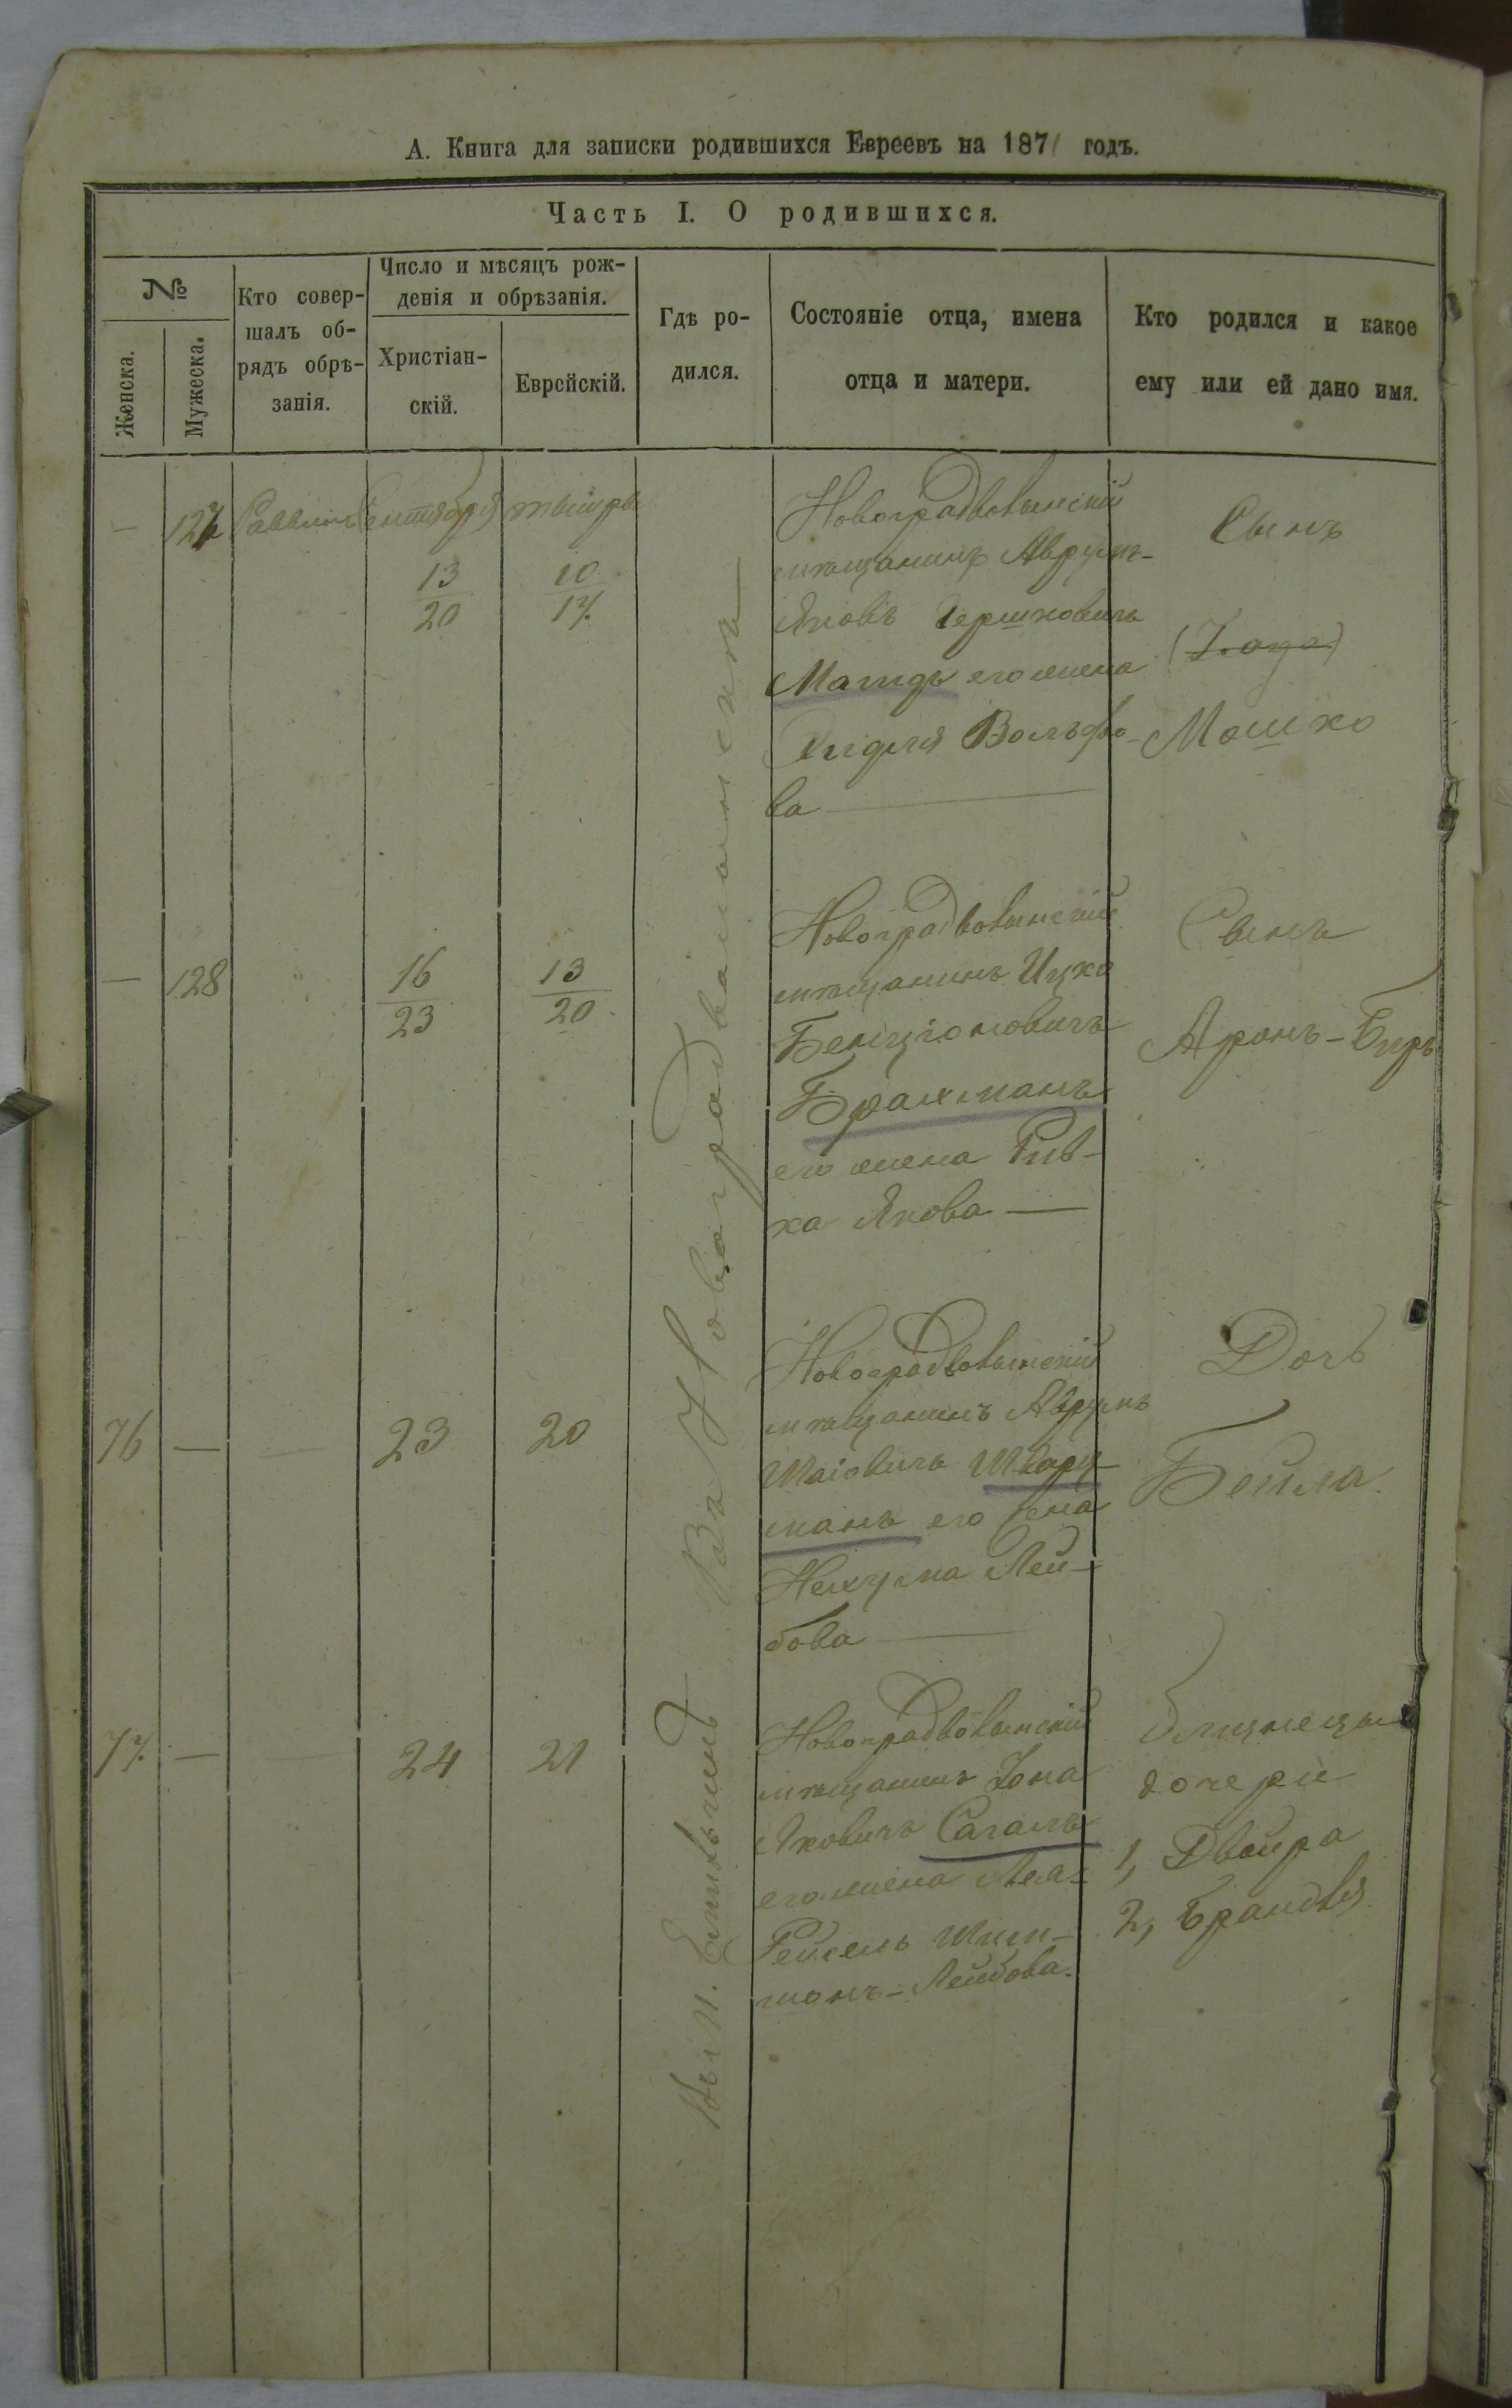 А. Книга для записки родившихся Евреевъ на 1871 годъ.
Часть I. О родившихся.
№
Женска.
Мужеска.
Кто совер-
шалъ об-
рядъ обрѣ-
занія.
Число и мѣсяцъ рож-
денія и обрѣзанія.
Христіан-
скій.
Еврейскій.
Гдѣ ро-
дился.
Состояніе отца, имена
отца и матери.
Кто родился и какое
ему или ей дано имя.
— 127 Раввинъ Сентября тишри
13 10
20 17.
Новоградволынскій
мѣщанинъ Аврумъ-
Яковъ Гершковичъ
Магидъ его жена
Вольфо-
ва
Сынъ
Мошко
— 128 " 16 13
23 20
Новоградволынскій
мѣщанинъ Ицко
Бенціоновичъ
его жена Рив-
ка Якова
Сынъ
Аронъ-Беръ
76 — — 23 20
Новоградволынскій
мѣщанинъ Аврумъ
Шаіовичъ Шварц-
манъ его жена
Нехума Лей-
бова
Дочь
Бейла.
77. — — 24 21
Новоградволынскій
мѣщанинъ Іона
Яковичъ Сагалъ
его жена Леа-
Рейзель Шим-
монъ-Лейбова.
близнецы
дочери
1, Двойра
2, Брандля.
Въ Новоградволынскѣ